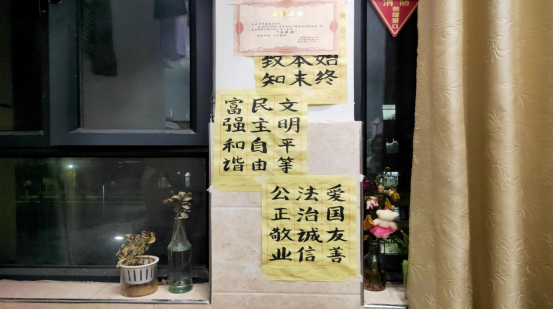 消防
救援窗口
致知
本末
始终
富强和谐
民主自由
文明平等
公正敬业
法治诚信
爱国友善